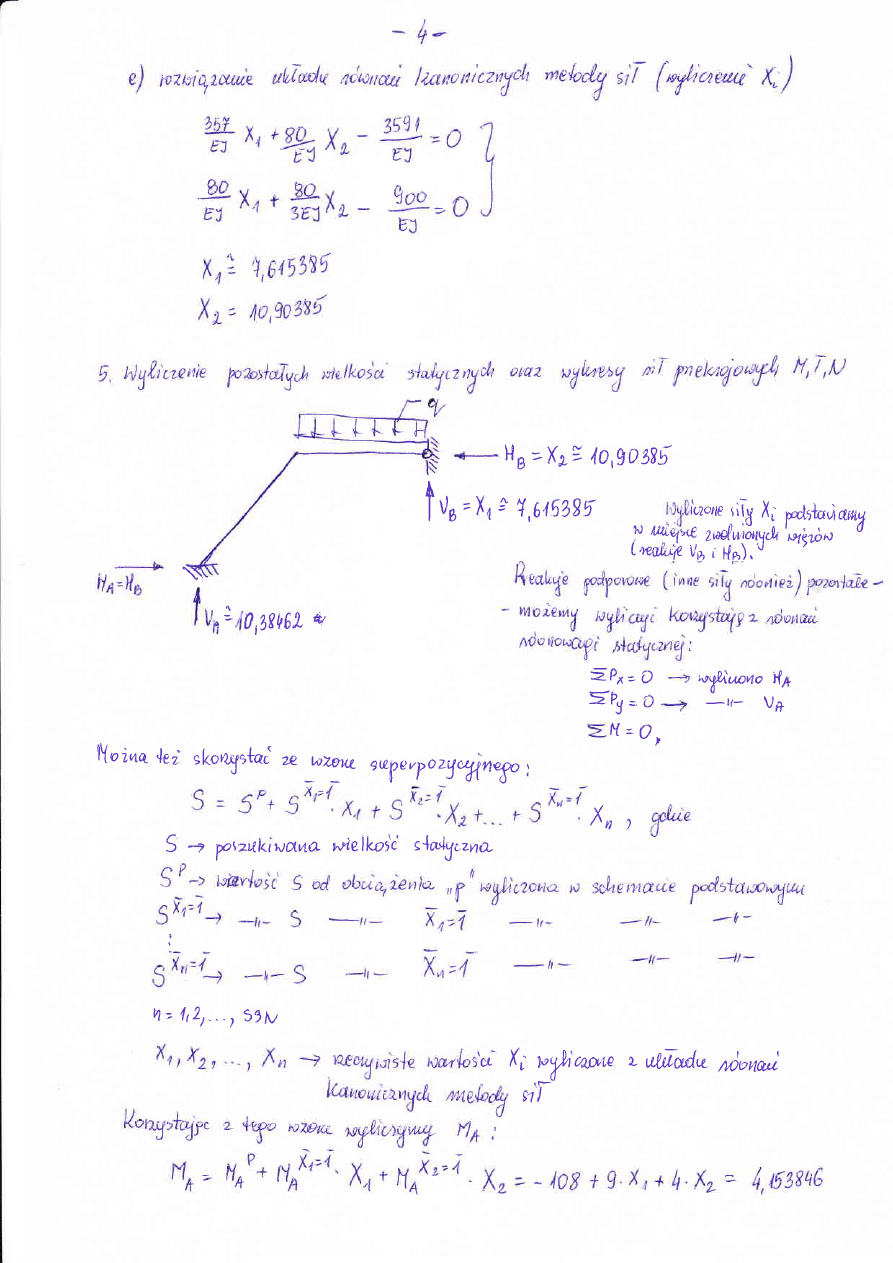 - 4 -
e) rozwiązanie układu równań kanonicznych metody sił (wyliczenie Xi)
357/EJ X1 + 80/EJ X2 - 3591/EJ = 0
80/EJ X1 + 80/3EJ X2 - 900/EJ = 0
X1 ≅ 7,615385
X2 = 10,90385
5. Wyliczenie pozostałych wielkości statycznych oraz wykresy sił przekrojowych M,T,N
q
HB = X2 ≅ 10,90385
VB = X1 ≅ 7,615385
Wyliczone siły Xi podstawiamy
w miejsce zwolnionych więzów
(reakcje VB i HB).
HA=HB
VA ≅ 10,38462
Reakcje podporowe (inne siły również) pozostałe -
- możemy wyliczyć korzystając z równań
równowagi statycznej:
ΣPx = 0 → wyliczono HA
ΣPy = 0 → -"- VA
ΣM = 0,
Można też skorzystać ze wzoru superpozycyjnego:
S = S^P + S^X̄1=1̄ · X1 + S^X̄2=1̄ · X2 + ... + S^X̄n=1̄ · Xn , gdzie
S → poszukiwana wielkość statyczna
S^P → wartość S od obciążenia „p" wyliczona w schemacie podstawowym
S^X̄1=1̄ → -"- S -"- X̄1=1̄ -"- -"- -"-
⋮
S^X̄n=1̄ → -"- S -"- X̄n=1̄ -"- -"- -"-
n = 1,2,..., SSN
X1, X2, ..., Xn → rzeczywiste wartości Xi wyliczone z układu równań
kanonicznych metody sił
Korzystając z tego wzoru wyliczymy MA :
MA = MA^P + MA^X̄1=1̄ · X1 + MA^X̄2=1̄ · X2 = - 108 + 9 · X1 + 4 · X2 = 4,153846